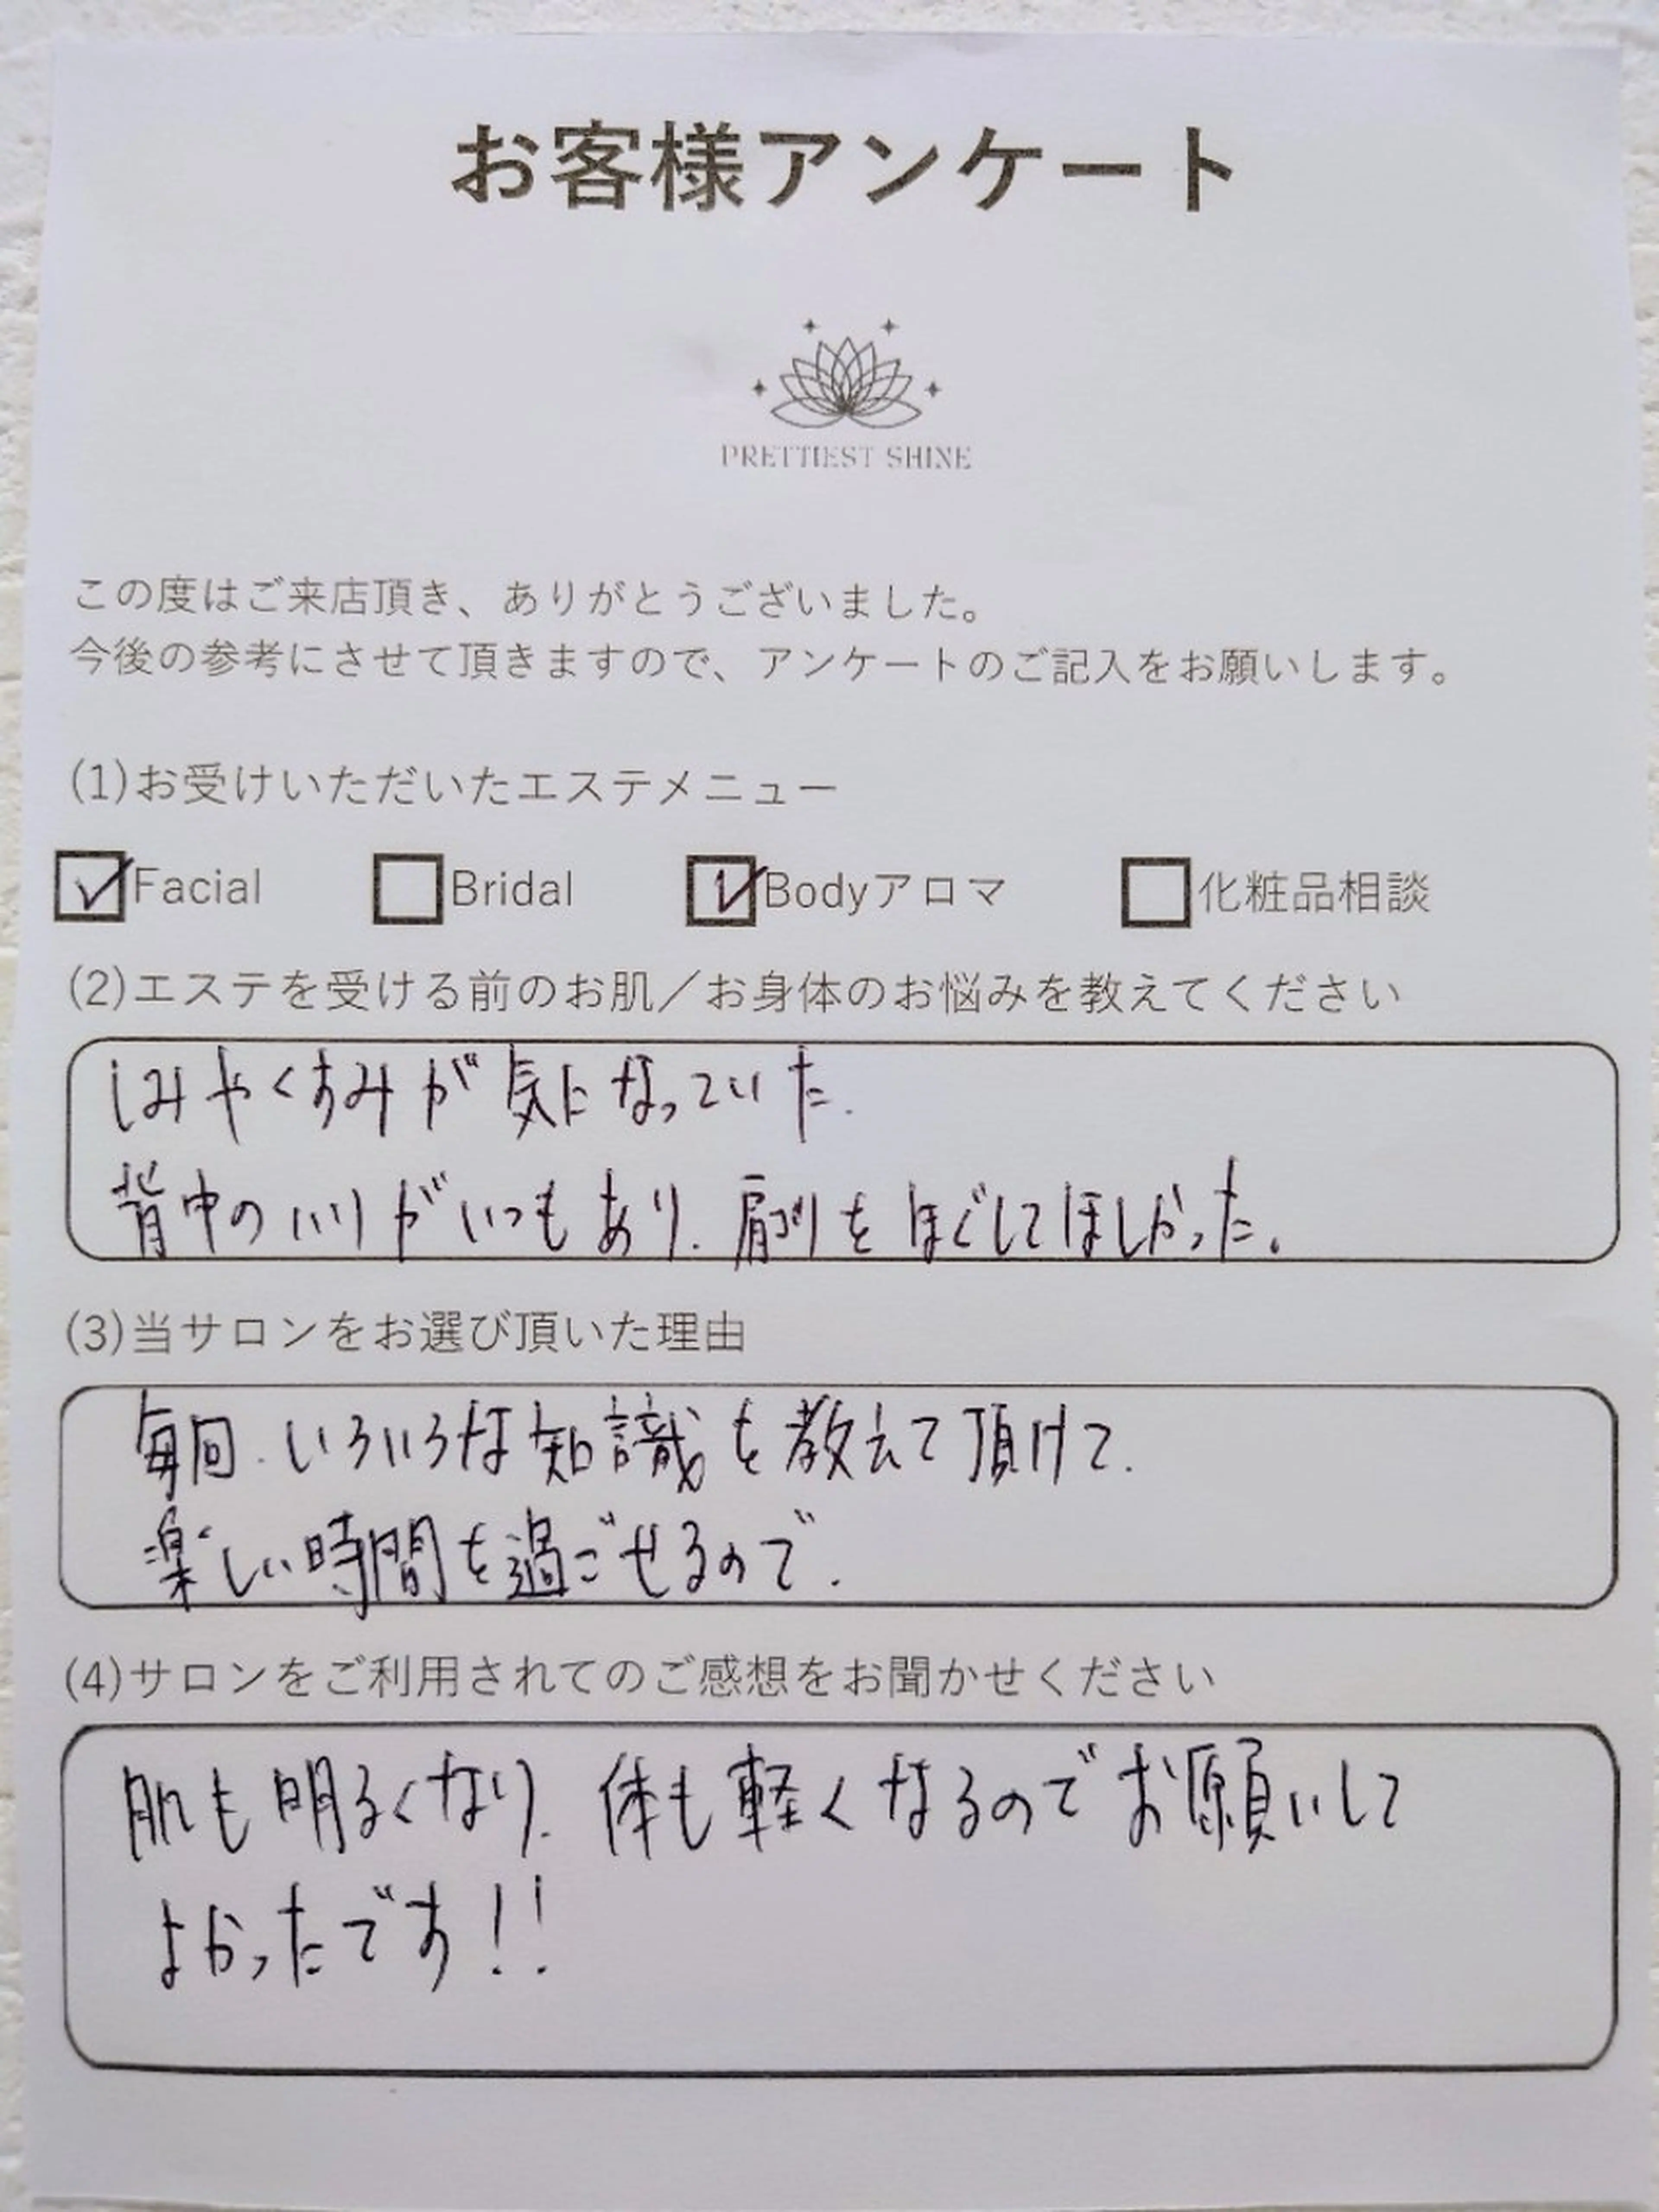 お客様アンケート
PRETTIEST SHINE
この度はご来店頂き、ありがとうございました。
今後の参考にさせて頂きますので、アンケートのご記入をお願いします。
(1)お受けいただいたエステメニュー
Facial Bridal Bodyアロマ 化粧品相談
(2)エステを受ける前のお肌／お身体のお悩みを教えてください
しみやくすみが気になっていた.
背中のハリがいつもあり. 肩コリをほぐしてほしかった。
(3)当サロンをお選び頂いた理由
毎回.いろいろな知識を教えて頂けて.
楽しい時間を過ごせるので.
(4)サロンをご利用されてのご感想をお聞かせください
肌も明るくなり. 体も軽くなるのでお願いして
よかったです!!